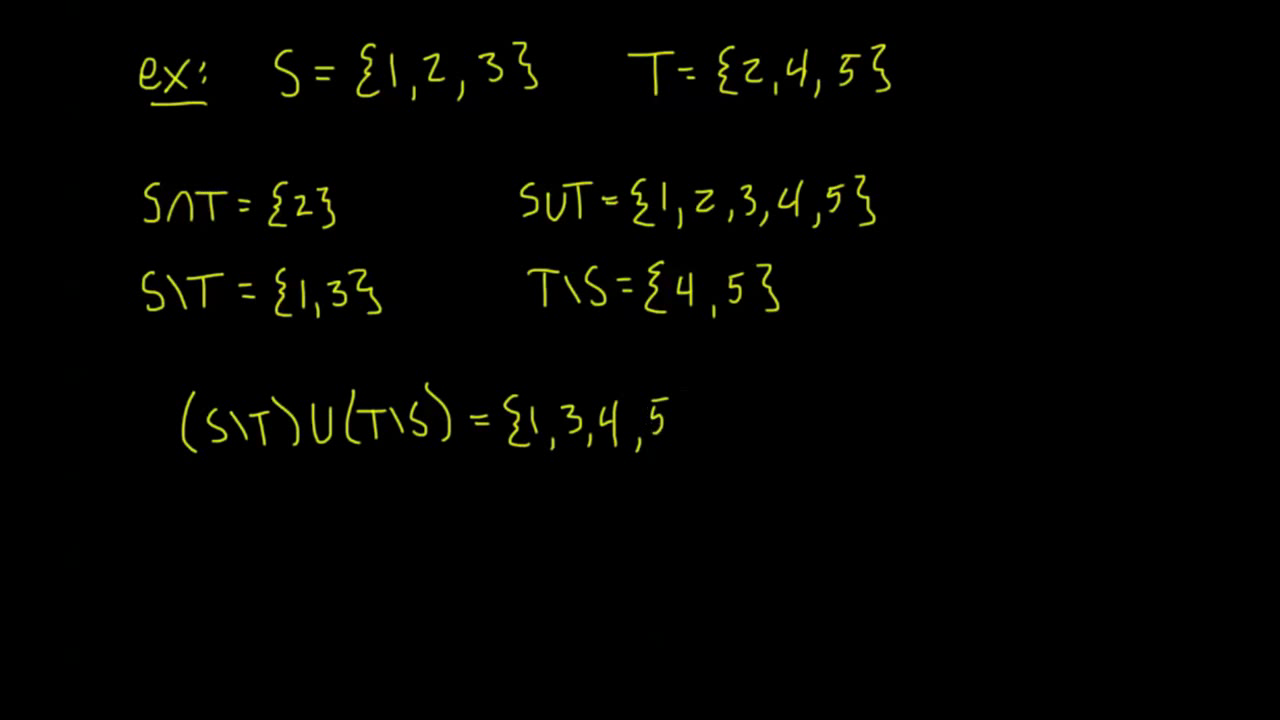 ex: S = {1, 2, 3} T = {2, 4, 5}
S∩T = {2} S∪T = {1, 2, 3, 4, 5}
S\T = {1, 3} T\S = {4, 5}
(S\T) ∪ (T\S) = {1, 3, 4, 5